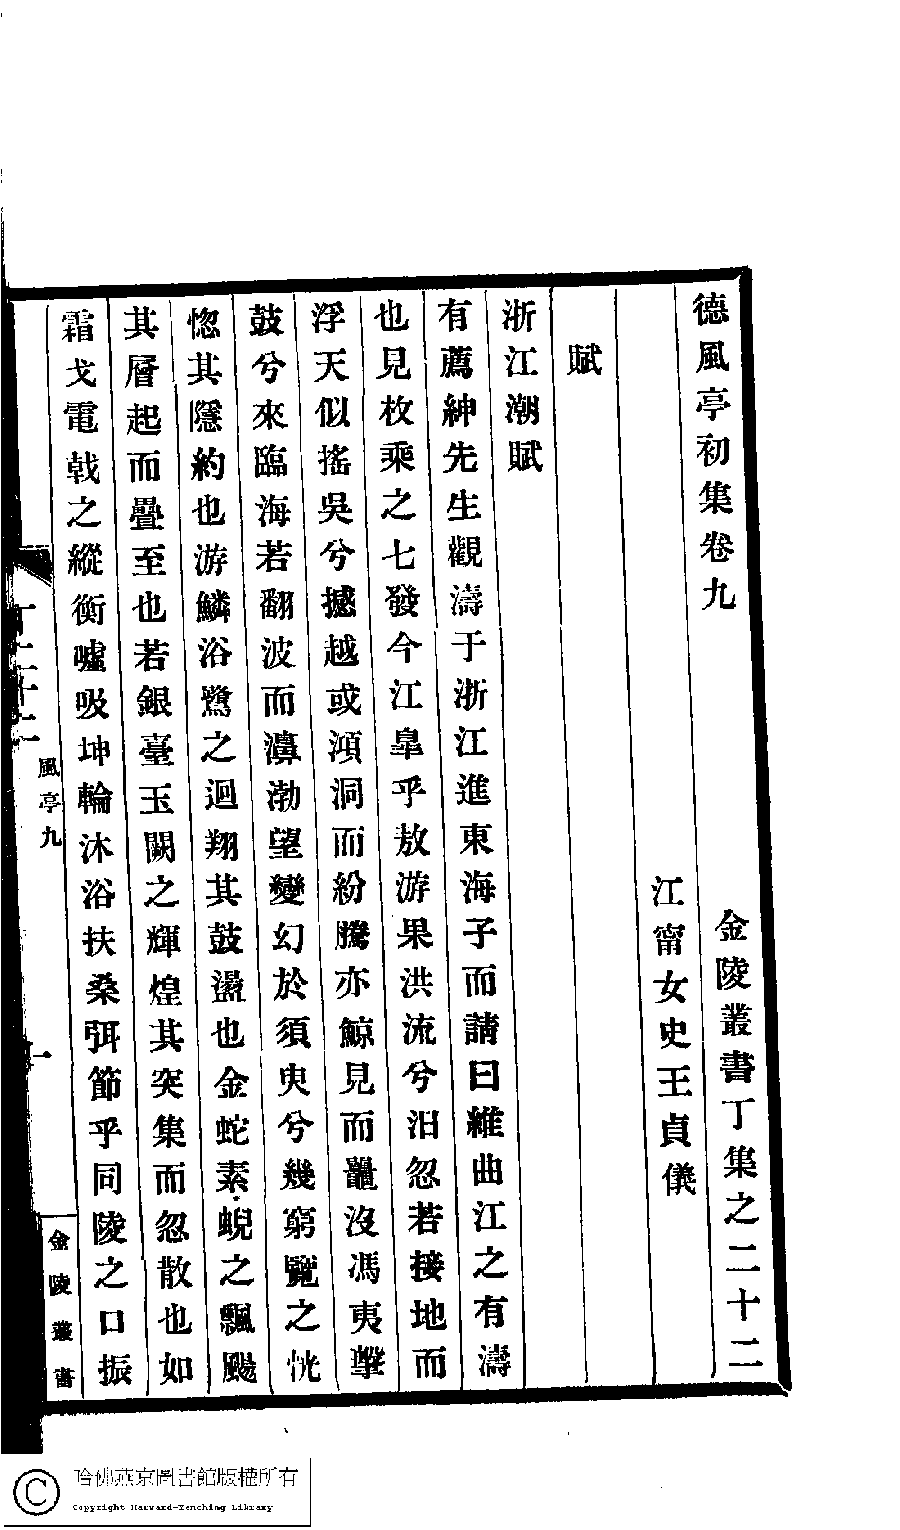 德風亭初集卷九
金陵叢書丁集之二十二
江甯女史王貞儀
賦
浙江潮賦
有薦紳先生觀濤于浙江進東海子而請曰維曲江之有濤
也見枚乘之七發今江皐乎敖游果洪流兮汨忽若接地而
浮天似搖吳兮撼越或澒洞而紛騰亦鯨見而鼉沒馮夷擊
鼓兮來臨海若翻波而濞渤望變幻於須臾兮幾窮覽之恍
惚其隱約也游鱗浴鷺之迴翔其鼓盪也金蛇素蜺之飄颺
其層起而疊至也若銀臺玉闕之輝煌其突集而忽散也如
霜戈電戟之縱衡噓吸坤輪沐浴扶桑弭節乎同陵之口振
風亭九
一
金陵叢書
哈佛燕京圖書館版權所有
Copyright Harvard-Yenching Library